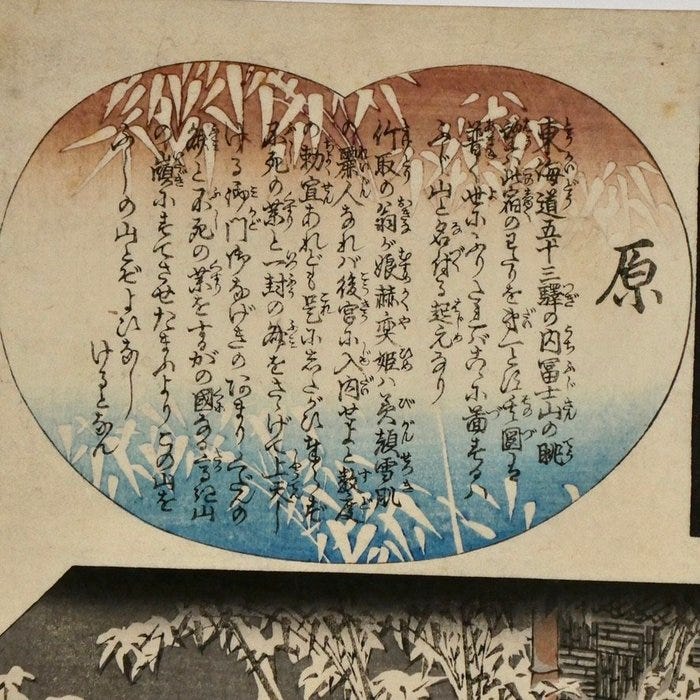 原
東海道五十三驛の内冨士山の眺
望ハ此宿のわたりを第一とす其圖ハ
普く世にふりたれバこゝに啚するハ
ふじ山と名付る起元なり
竹取の翁が娘赫奕姫ハ美顔雪肌
の麗人なれバ後宮に入内せよと数度
の勅宣あれども是にしたがひ奉らず
不死の薬と一封の文をさゝげて上天し
ける御門御なげきのあまりくだんの
文と不死の薬をするがの國なる高き山
の嶺にすてさせたまふよりこの山を
ふしの山とぞよびなし
けるとなん